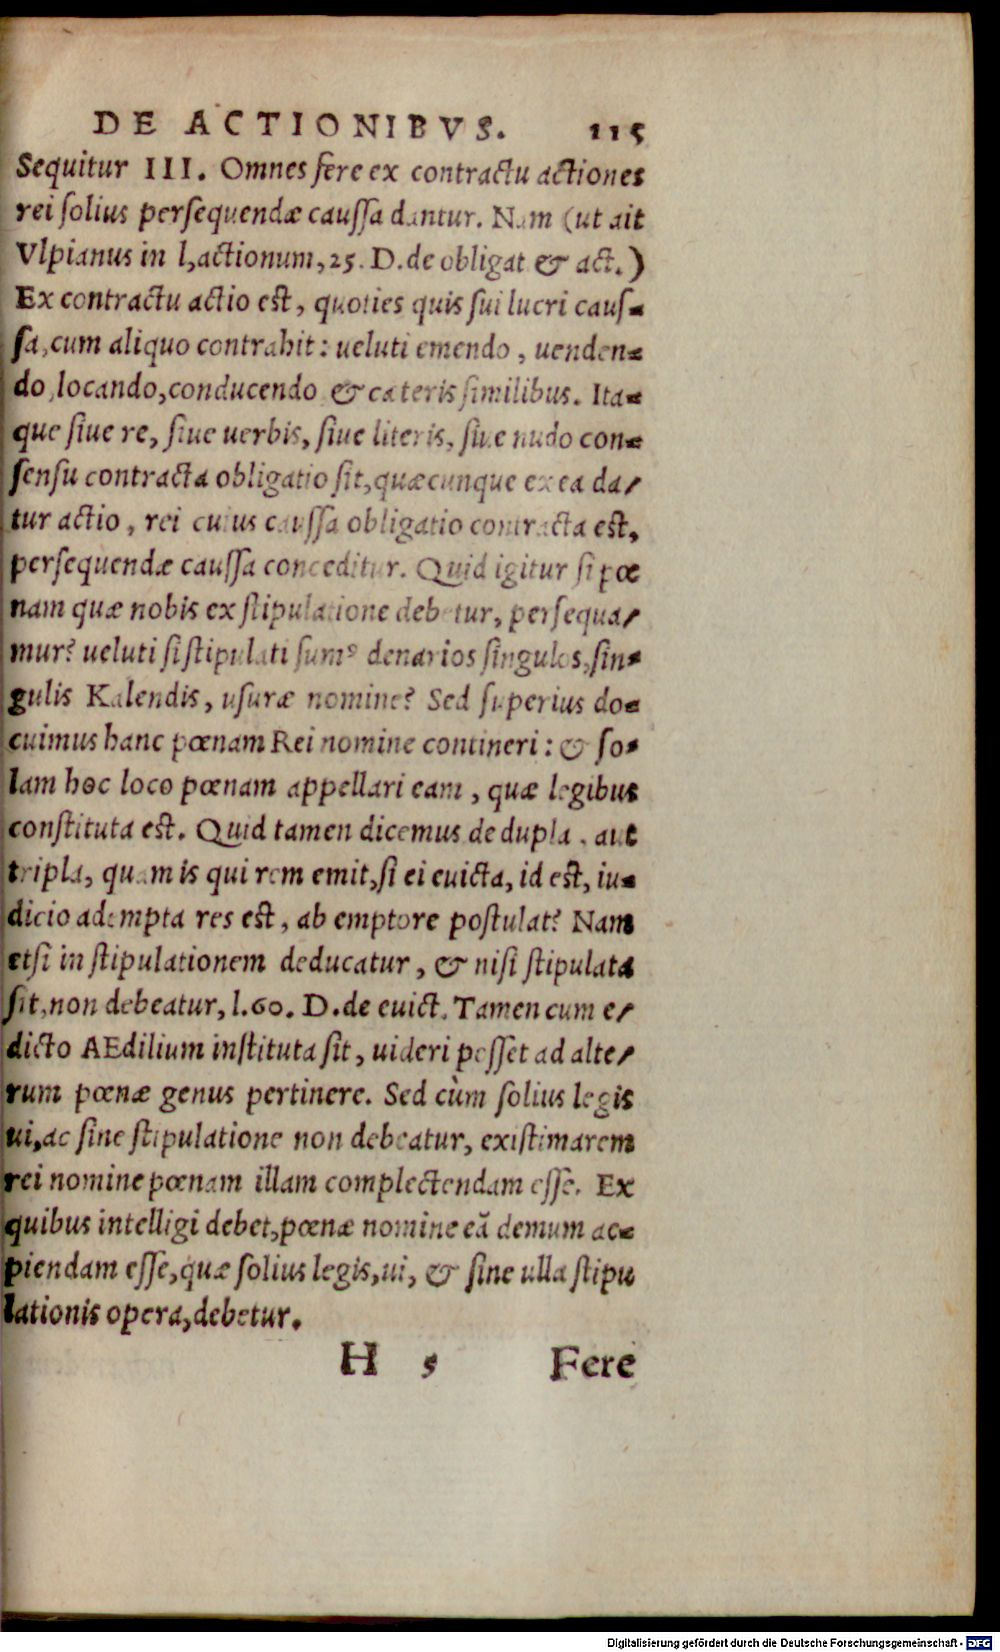 DE ACTIONIBVS. 115
Sequitur III. Omnes fere ex contractu actiones
rei ſolius perſequendæ cauſſa dantur. Nam (ut ait
Vlpianus in l,actionum,25. D.de obligat & act.)
Ex contractu actio est, quoties quis ſui lucri cauſ-
ſa,cum aliquo contrahit: ueluti emendo, uenden-
do,locando,conducendo & cæteris ſimilibus. Ita-
que ſiue re, ſiue uerbis, ſiue literis, ſiue nudo con-
ſenſu contracta obligatio ſit,quæcunque ex ea da-
tur actio, rei cuius cauſſa obligatio contracta est,
perſequendæ cauſſa conceditur. Quid igitur ſi pœ
nam quæ nobis ex ſtipulatione debetur, perſequa-
mur? ueluti ſi ſtipulati ſumꝰ denarios ſingulos,ſin-
gulis Kalendis, uſuræ nomine? Sed ſuperius do-
cuimus hanc pœnam Rei nomine contineri: & ſo-
lam hoc loco pœnam appellari eam, quæ legibus
conſtituta est. Quid tamen dicemus de dupla, aut
tripla, quam is qui rem emit,ſi ei euicta, id est, iu-
dicio adempta res est, ab emptore poſtulat? Nam
etſi in ſtipulationem deducatur, & niſi ſtipulata
ſit,non debeatur, l.60. D.de euict. Tamen cum e-
dicto AEdilium inſtituta ſit, uideri poſſet ad alte-
rum pœnæ genus pertinere. Sed cùm ſolius legis
ui,ac ſine ſtipulatione non debeatur, exiſtimarem
rei nomine pœnam illam complectendam eſſe. Ex
quibus intelligi debet,pœnæ nomine eã demum ac-
piendam eſſe,quæ ſolius legis,ui, & ſine ulla ſtipu
lationis opera,debetur.
H 5 Fere
Digitalisierung gefördert durch die Deutsche Forschungsgemeinschaft - DFG